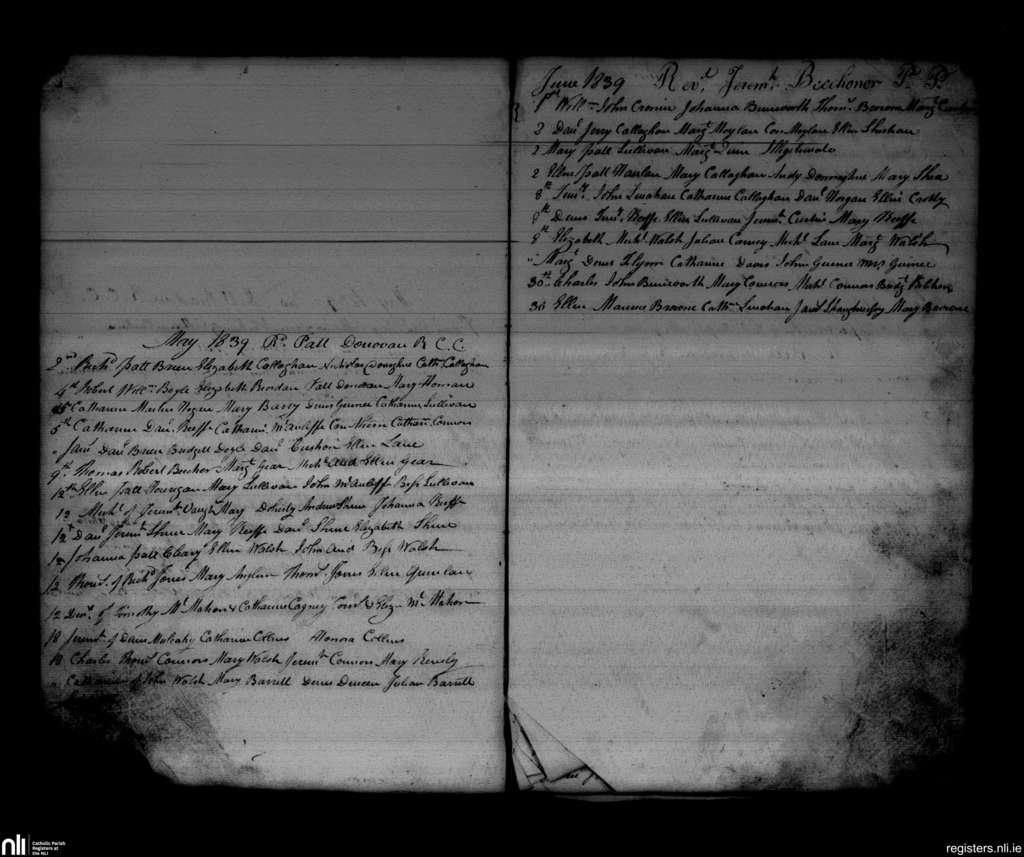 May 1839 Rd. Patt Donovan R C C.
2nd Richd Patt Breen Elizabeth Callaghan Nicholas Donoghue Cath. Callaghan
4th Robert Willm Boyle Elizabeth Riordan Patt Donovan Mary Honan
Catharine Martin Regan Mary Barry Denis Guinee Catharine Sullivan
5th Catharine Danl Keeffe Catharine McAuliffe Con Catharn Connors
" Danl Breen Bridgett Doyle Danl Ellen Lane
9th Thomas Robert Beecher Margt Gear Michl and Ellen Gear
12th Ellen Patt Mary Sullivan John McAuliffe Bess Sullivan
12 Michl of Jeremh Mary Doherty Andrew Shine Johanna Keeffe
12 Danl Jeremh Shine Mary Keeffe Danl Shine Elizabeth Shine
12 Johanna Patt Cleary Ellen Walsh John and Bess Walsh
12 Thoms. of Richd Jones Mary Thoms. Jones Ellen Quinlan
12 of Timothy McMahon & Catharine Cagney & Eliza McMahon
18 Jeremh of Denis Mulcahy Catharine Collins Honora Collins
Charles Thoms Connors Mary Walsh Jeremh Connors Mary
" Catharine of John Walsh Mary Barrett Denis Julian Barrett
June 1839 Revd. Jeremh. Beechonor P. P.
1st Willm John Cronin Johanna Buniworth Thoms. Browne Margt
2 Danl Jerry Callaghan Margt Moylan Con Moylan Ellen Sheehan
2 Mary Patt Sullivan Margt Illigitimate
2 Ellen Patt Mary Callaghan Andy Donoughue Mary Shea
8th Timy. John Linahan Catharine Callaghan Danl Horgan Ellen
8th Denis Timy. Keeffe Ellen Sullivan Jeremh. Curtin Mary Keeffe
8th Elizabeth Michl Walsh Julian Carney Michl Lane Margt Walsh
" Margt Denis Catharine Davis John Guinee Mrs Guinee
30th Charles John Buniworth Mary Connors Michl Connors Bridgt
30 Ellen Maurice Browne Cathn Linahan Mary Browne
nli
Catholic Parish
Registers at
the NLI
registers.nli.ie